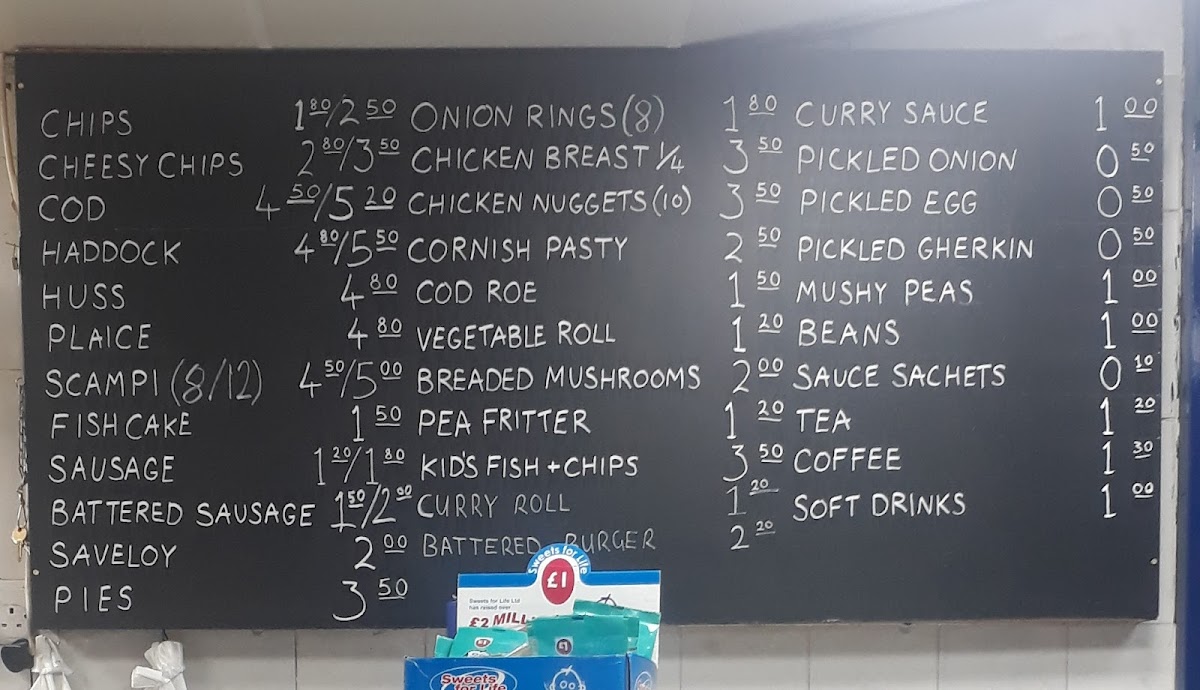 CHIPS 1 80/2 50
CHEESY CHIPS 2 80/3 50
COD 4 50/5 20
HADDOCK 4 80/5 50
HUSS 4 80
PLAICE 4 80
SCAMPI (8/12) 4 50/5 00
FISH CAKE 1 50
SAUSAGE 1 20/1 80
BATTERED SAUSAGE 1 50/2 00
SAVELOY 2 00
PIES 3 50
ONION RINGS (8) 1 80
CHICKEN BREAST 1/4 3 50
CHICKEN NUGGETS (10) 3 50
CORNISH PASTY 2 50
COD ROE 1 50
VEGETABLE ROLL 1 20
BREADED MUSHROOMS 2 00
PEA FRITTER 1 20
KID'S FISH + CHIPS 3 50
CURRY ROLL 1 20
BATTERED BURGER 2 20
CURRY SAUCE 1 00
PICKLED ONION 0 50
PICKLED EGG 0 50
PICKLED GHERKIN 0 50
MUSHY PEAS 1 00
BEANS 1 00
SAUCE SACHETS 0 10
TEA 1 20
COFFEE 1 30
SOFT DRINKS 1 00
Sweets for Life
£1
Sweets for Life Ltd
has raised over
£2 MILL
Sweets
for Life